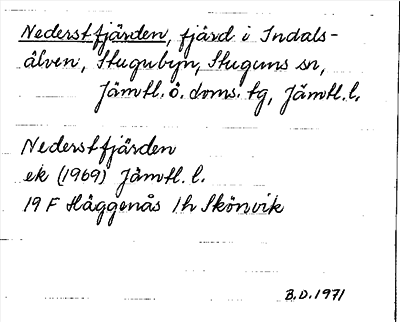 Nederstfjärden, fjärd i Indals-
älven, Stugubyn, Stuguns sn,
Jämtl. ö. doms. tg, Jämtl. l.
Nederstfjärden
ek (1969) Jämtl. l.
19 F Häggenås 1h Skönvik
B.D. 1971